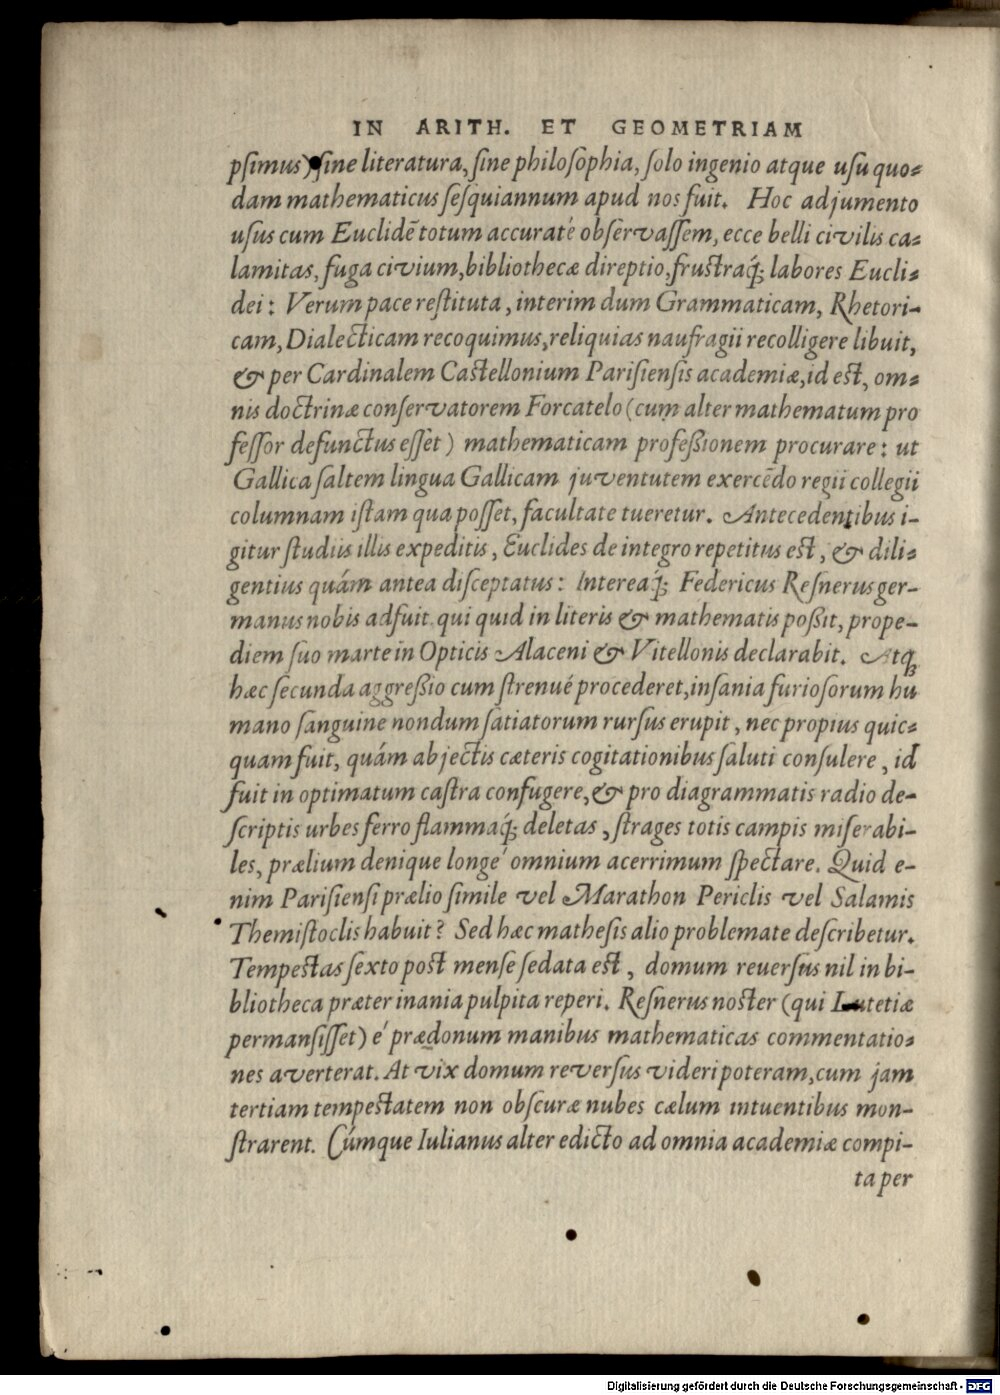 IN ARITH. ET GEOMETRIAM
psimus) sine literatura, sine philosophia, solo ingenio atque usu quo-
dam mathematicus sesquiannum apud nos fuit. Hoc adjumento
usus cum Euclidē totum accuraté observassem, ecce belli civilis ca-
lamitas, fuga civium, bibliothecæ direptio, frustraq́; labores Eucli-
dei: Verum pace restituta, interim dum Grammaticam, Rhetori-
cam, Dialecticam recoquimus, reliquias naufragii recolligere libuit,
& per Cardinalem Castellonium Parisiensis academiæ, id est, om-
nis doctrinæ conservatorem Forcatelo (cum alter mathematum pro
fessor defunctus esset) mathematicam profeßionem procurare: ut
Gallica saltem lingua Gallicam juventutem exercēdo regii collegii
columnam istam qua posset, facultate tueretur. Antecedentibus i-
gitur studiis illis expeditis, Euclides de integro repetitus est, & dili-
gentius quám antea disceptatus: Intereaq́; Federicus Resnerus ger-
manus nobis adfuit qui quid in literis & mathematis poßit, prope-
diem suo marte in Opticis Alaceni & Vitellonis declarabit. Atq;
hæc secunda aggreßio cum strenué procederet, insania furiosorum hu
mano sanguine nondum satiatorum rursus erupit, nec propius quic-
quam fuit, quám abjectis cæteris cogitationibus saluti consulere, id
fuit in optimatum castra confugere, & pro diagrammatis radio de-
scriptis urbes ferro flammaq́; deletas, strages totis campis miserabi-
les, prælium denique longé omnium acerrimum spectare. Quid e-
nim Parisiensi prælio simile vel Marathon Periclis vel Salamis
Themistoclis habuit? Sed hæc mathesis alio problemate describetur.
Tempestas sexto post mense sedata est, domum reuersus nil in bi-
bliotheca præter inania pulpita reperi. Resnerus noster (qui Lutetiæ
permansisset) é prædonum manibus mathematicas commentatio-
nes averterat. At vix domum reversus videri poteram, cum jam
tertiam tempestatem non obscuræ nubes cælum intuentibus mon-
strarent. Cúmque Iulianus alter edicto ad omnia academiæ compi-
ta per
Digitalisierung gefördert durch die Deutsche Forschungsgemeinschaft - DFG